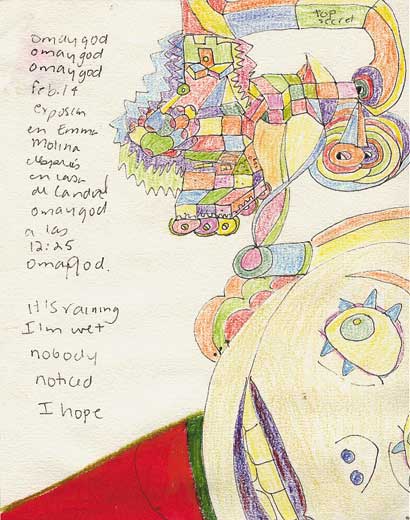 omaygod
omaygod
omaygod
feb. 14
exposición
en Emma
Molina
después
en casa
de Landois
omaygod
a las
12:25
omaygod.
It's raining
I'm wet
nobody
noticed
I hope
top
secret